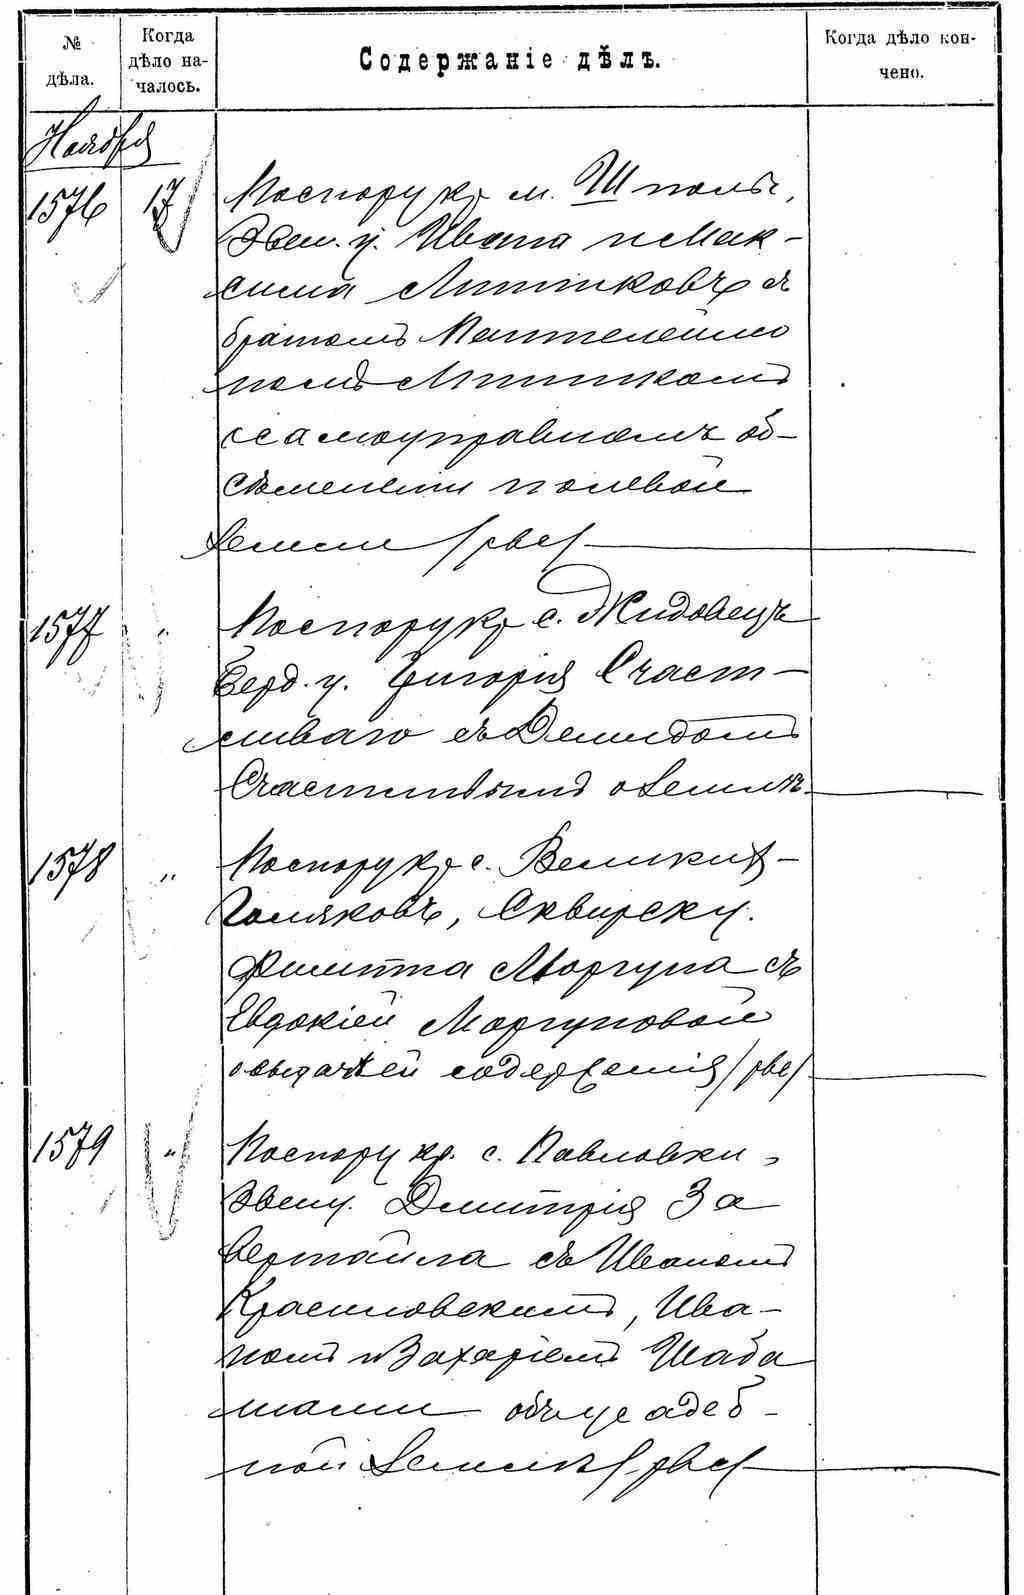 № дѣла.
Когда дѣло на-
чалось.
Содержаніе дѣлъ.
Когда дѣло кон-
чено.
Ноября
1576 17 По спору кр. м. Шполы,
Звен. у. Ивана и Мак-
сима Липпковъ съ
братомъ Пантелеймо
номъ Липпкомъ
о самоуправномъ об-
сѣмененіи полевой
земли /рве/
1577 " По спору кр. с. Жидовецъ
Берд. у. Григорія Счаст-
ливаго съ Демидомъ
Счастливымъ о землѣ
1578 " По спору кр. с. Великих-
Голяковъ, Сквирск у.
Филиппа Моргуна съ
Евдокіей Моргуновой
о выдачѣ ей содержанія /рве/
1579 " По спору кр. с. Павловки,
Звен у. Дмитрія За
вертайла съ Иваномъ
Красиловскимъ, Ива-
номъ и Захаріемъ Шаба
нами объ усадеб-
ной землѣ /рве/